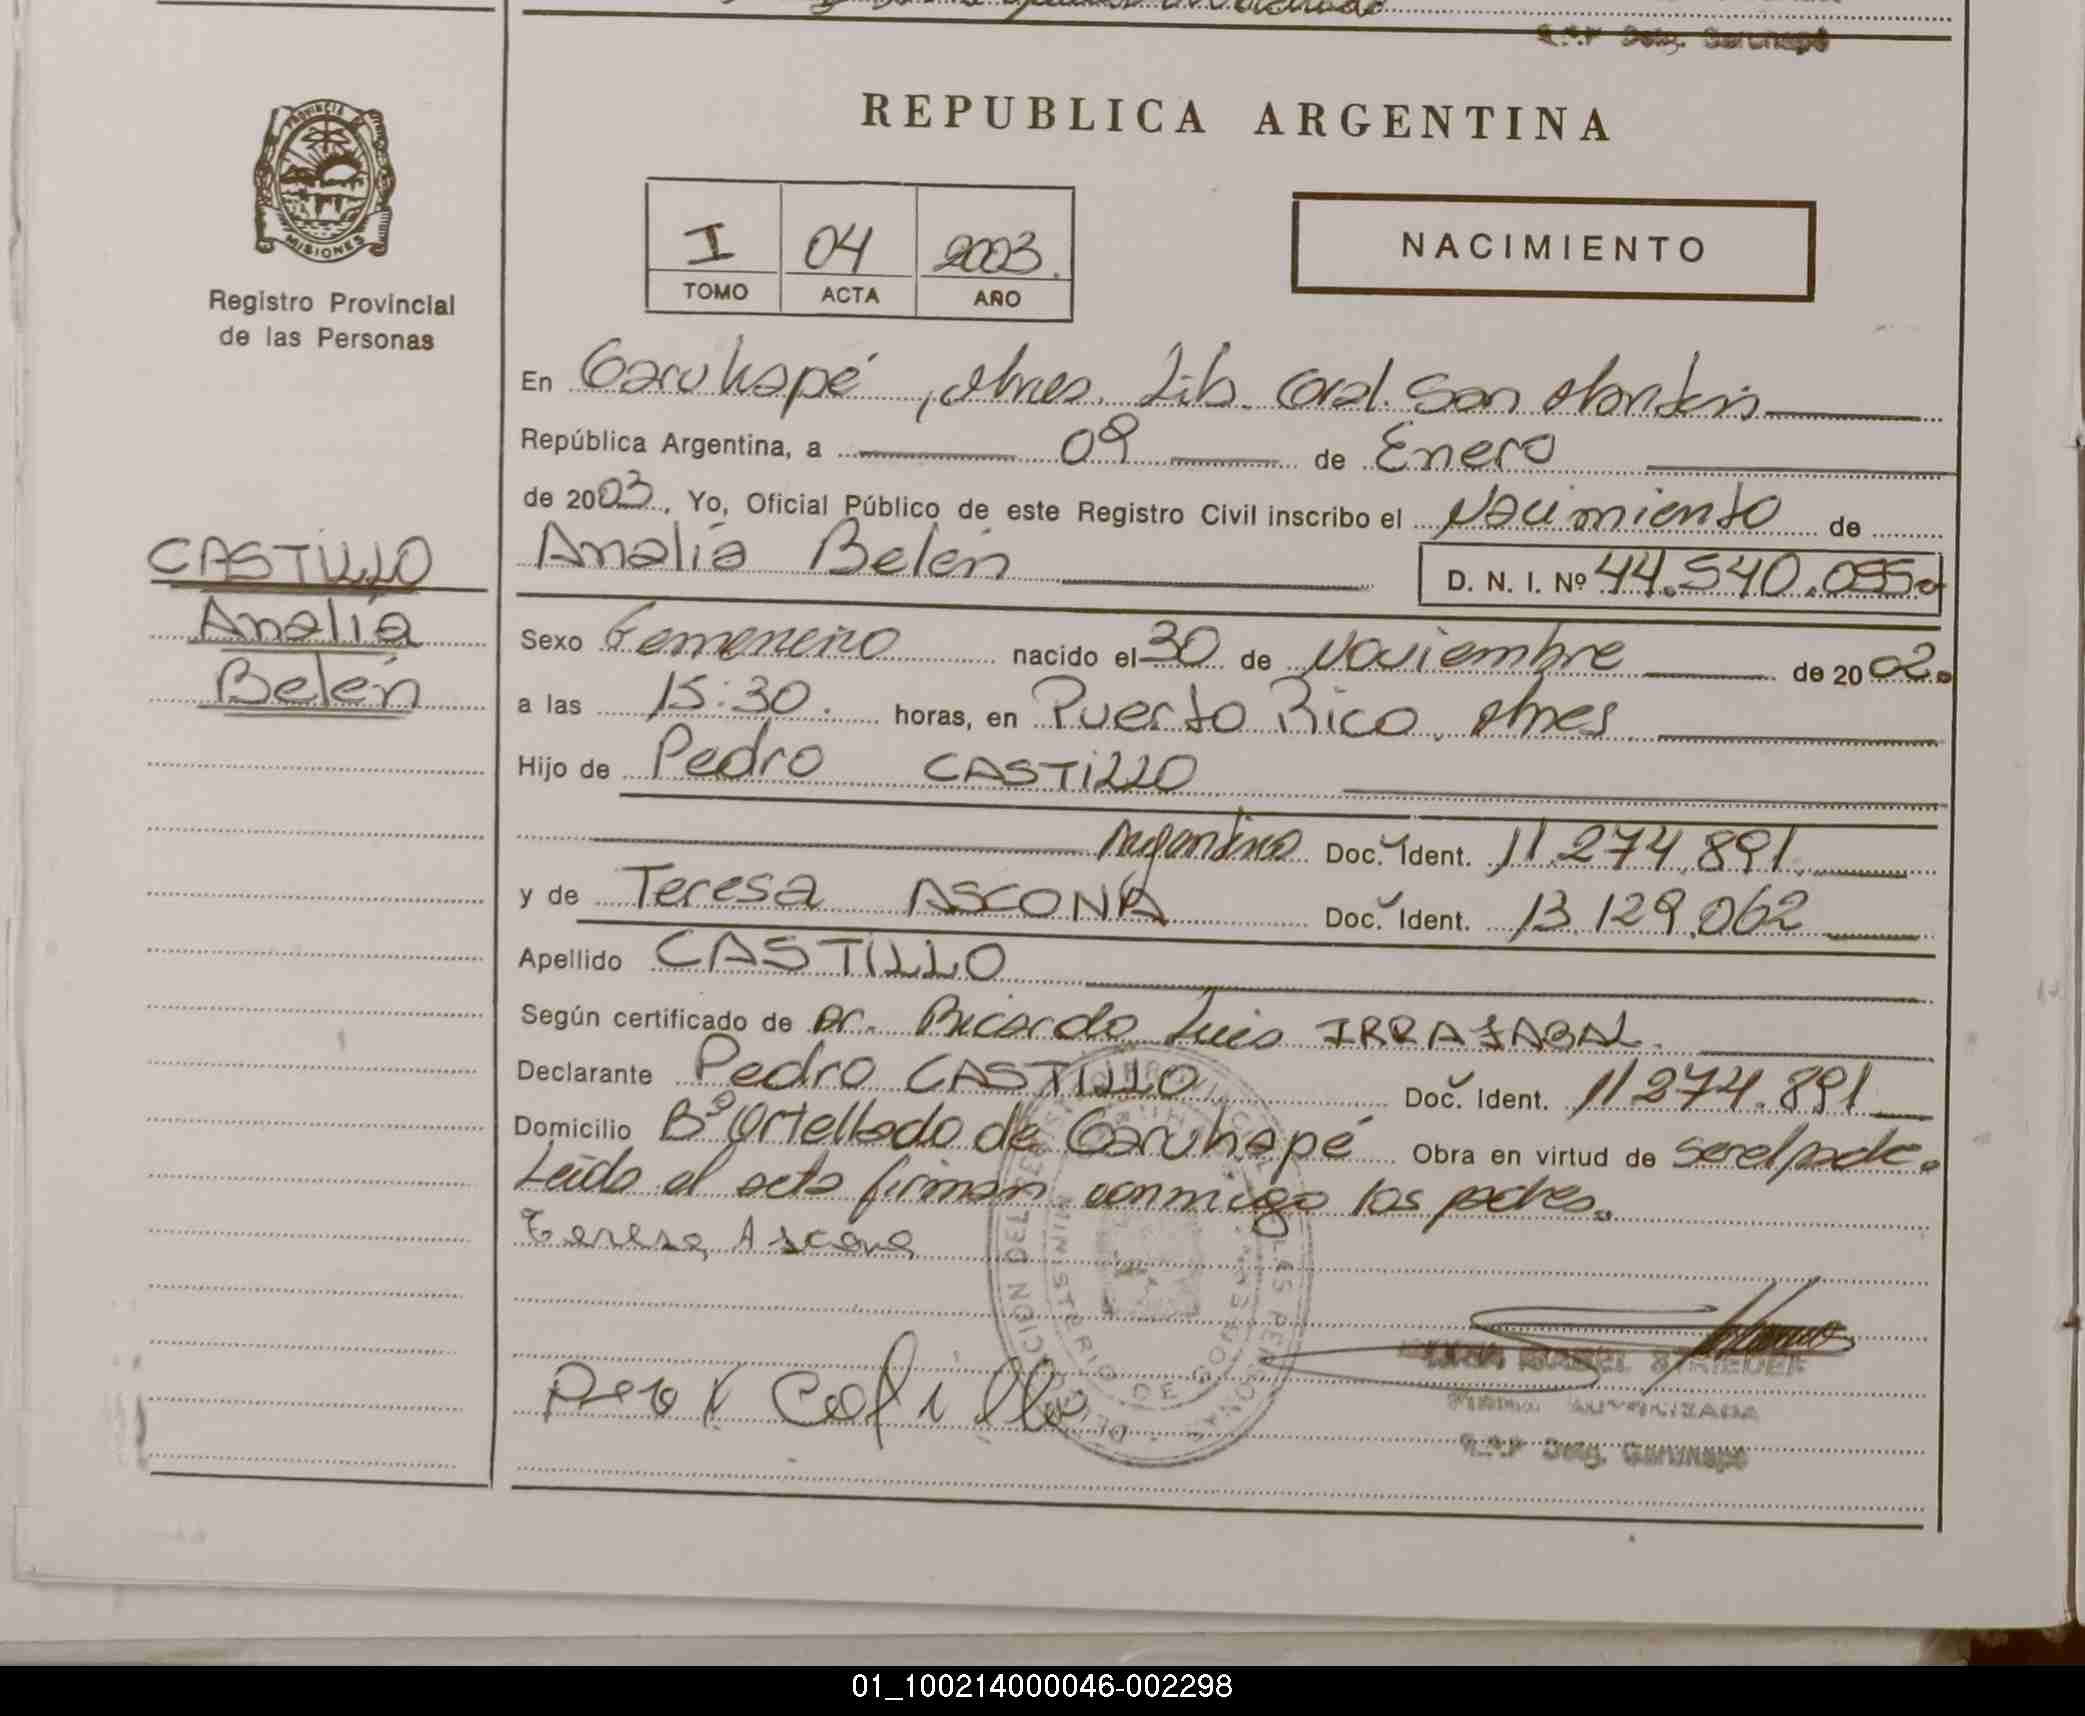 R.P.P Deleg. Garuhapé
PROVINCIA DE
MISIONES
Registro Provincial
de las Personas
REPUBLICA ARGENTINA
I 04 2003.
TOMO ACTA AÑO
NACIMIENTO
En Garuhapé, Mnes. Lib. Gral. San Martín
República Argentina, a 09 de Enero
de 2003., Yo, Oficial Público de este Registro Civil inscribo el Nacimiento de
Analía Belén D. N. I. Nº 44.540.055
CASTILLO
Analía
Belén
Sexo Femenino nacido el 30 de Noviembre de 2002.
a las 15:30. horas, en Puerto Rico, Mnes
Hijo de Pedro CASTILLO
Argentino Doc. Ident. 11.274.891.
y de Teresa ASCONA Doc. Ident. 13.129.062
Apellido CASTILLO
Según certificado de Dr. Ricardo Luis IRRAZABAL.
Declarante Pedro CASTILLO Doc. Ident. 11274.891
Domicilio Bº Ortellado de Garuhapé Obra en virtud de ser el padre.
Leída el acta firman conmigo los padres.
Teresa Ascona
FIRMA AUTORIZADA
R.P.P Deleg. Garuhapé
01_100214000046-002298